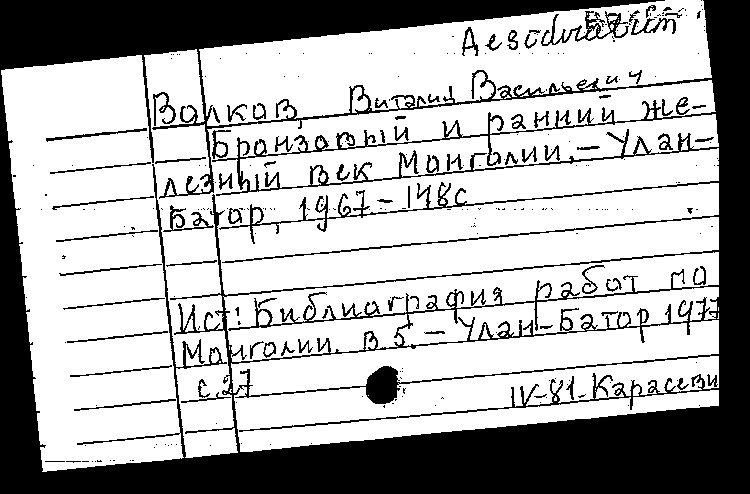 Волков, Виталий Васильевич
Бронзовый и ранний же-
лезный век Монголии. – Улан-
Батор, 1967 – 148с
Ист: Библиография работ по
Монголии. В.5. – Улан-Батор 1977
с.27
IV-81-Карасеви